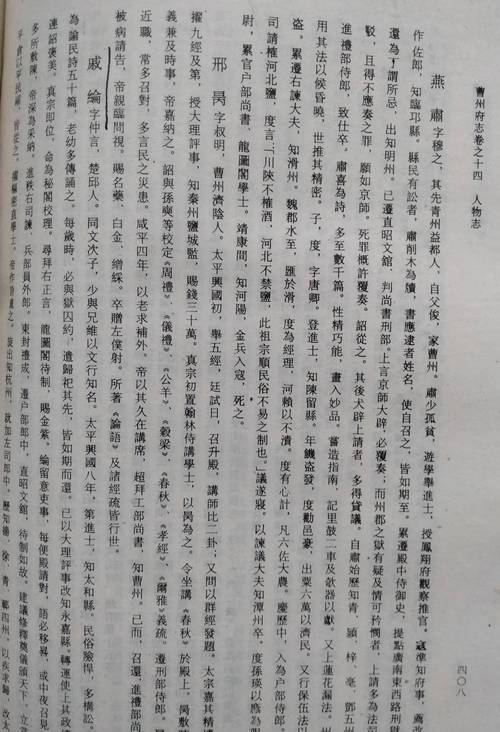 曹州府志卷之十四　人物志
四〇八
燕　肅　字穆之，其先青州益都人，自父俊，家曹州。肅少孤貧，遊學舉進士，授鳳翔府觀察推官。寇準知府事，薦改
作佐郎，知臨邛縣。縣民有訟者，肅削木為牘，書應逮者姓名，使自召之，皆如期至。累遷殿中侍御史，提點廣南東西路刑獄
還為丁謂所忌，出知明州。已遷直昭文館，判尚書刑部。上言京師大辟，必覆奏；而州郡之獄有疑及情可矜憫者，上請多為法司
駁，且得不應奏之罪，願如京師。死罪概許覆奏。詔從之。其後大辟上請者，多得貸議。自肅始歷知青、潁、梓、亳、鄧五州
進禮部侍郎，致仕卒。肅喜為詩，多至數千篇。性精巧能，畫入妙品。嘗造指南、記里鼓二車及欹器以獻。又上蓮花漏法。州
用其法以候昏曉，世推其精密。子，度，字唐卿。登進士，知陳留縣。年饑盜發，度勸邑豪，出粟六萬以濟民。又行保伍法以
盜。累遷右諫大夫，知滑州。魏郡水至，匯於滑，度為經理，河賴以不潰。度有心計，凡六佐大農。慶歷中，入為戶部侍郎。
司請榷河北鹽，度言：「川陝不榷酒，河北不禁鹽，此祖宗順民俗不易之制也。」議遂寢。以諫議大夫知潭州卒。度孫瑛以
尉，累官戶部尚書，龍圖閣學士。靖康間，知河陽，金兵入寇，死之。
邢　昺　字叔明，曹州濟陰人。太平興國初，舉五經，廷試日，召升殿，講師比二卦；又問以群經發題。太宗嘉其精博
擢九經及第，授大理評事，知泰州鹽城監，賜錢三十萬。真宗初置翰林侍講學士，以昺為之。令坐講《春秋》於殿上。昺敷
義兼及時事，帝嘉納之。詔與孫奭等校定《周禮》、《儀禮》、《公羊》、《穀梁》、《春秋》、《孝經》、《爾雅》義疏。遷刑部侍郎。
近職，常多召對，多言民之災患。咸平四年，以老求補外，帝以其久在講席，超拜工部尚書，知曹州。已而，召還，進禮部尚
被病請告，帝親臨問視。賜名藥、白金、繒綵。卒贈左僕射。所著《論語》及諸經疏皆行世。
戚　綸　字仲言，楚邱人。同文次子，少與兄維以文行知名。太平興國八年，第進士，知太和縣。民俗險悍，多構訟。
為諭民詩五十篇，老幼多傳誦之。每歲時，必與獄囚約，遣歸祀其先，皆如期而還。已以大理評事改知永嘉縣。轉運使上其政績
連詔褒美。真宗即位，命為秘閣校理。尋拜右正言，龍圖閣待制，賜金紫。綸留意吏事，每便殿請對，語必移晷，或中夜召見
多所敷陳，帝深為采納。進秩右司諫，兵部員外郎。東封禮成，遷戶部郎中，直昭文館，待制如故。建議修釋奠儀頒天下，立常
平倉以平民糴，皆從之。擢樞密直學士。旋出知杭州，就加左司郎中，歷知揚、徐、青、鄆四州。以疾求歸，改太